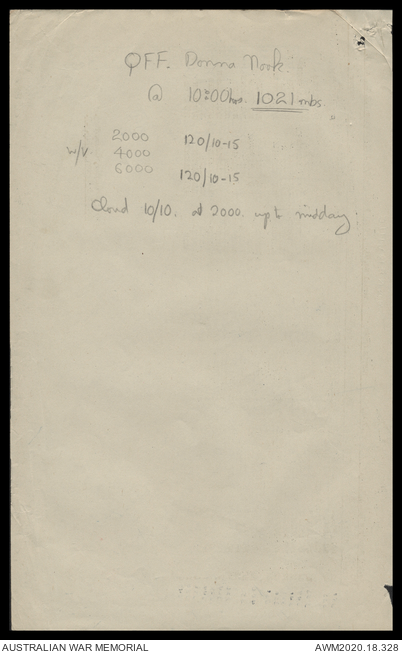 QFF. Donna Nook.
@ 10:00 hrs. 1021 mbs.
2000 120/10-15
w/v 4000
6000 120/10-15
Cloud 10/10. at 2000. up to midday.
AUSTRALIAN WAR MEMORIAL
AWM2020.18.328